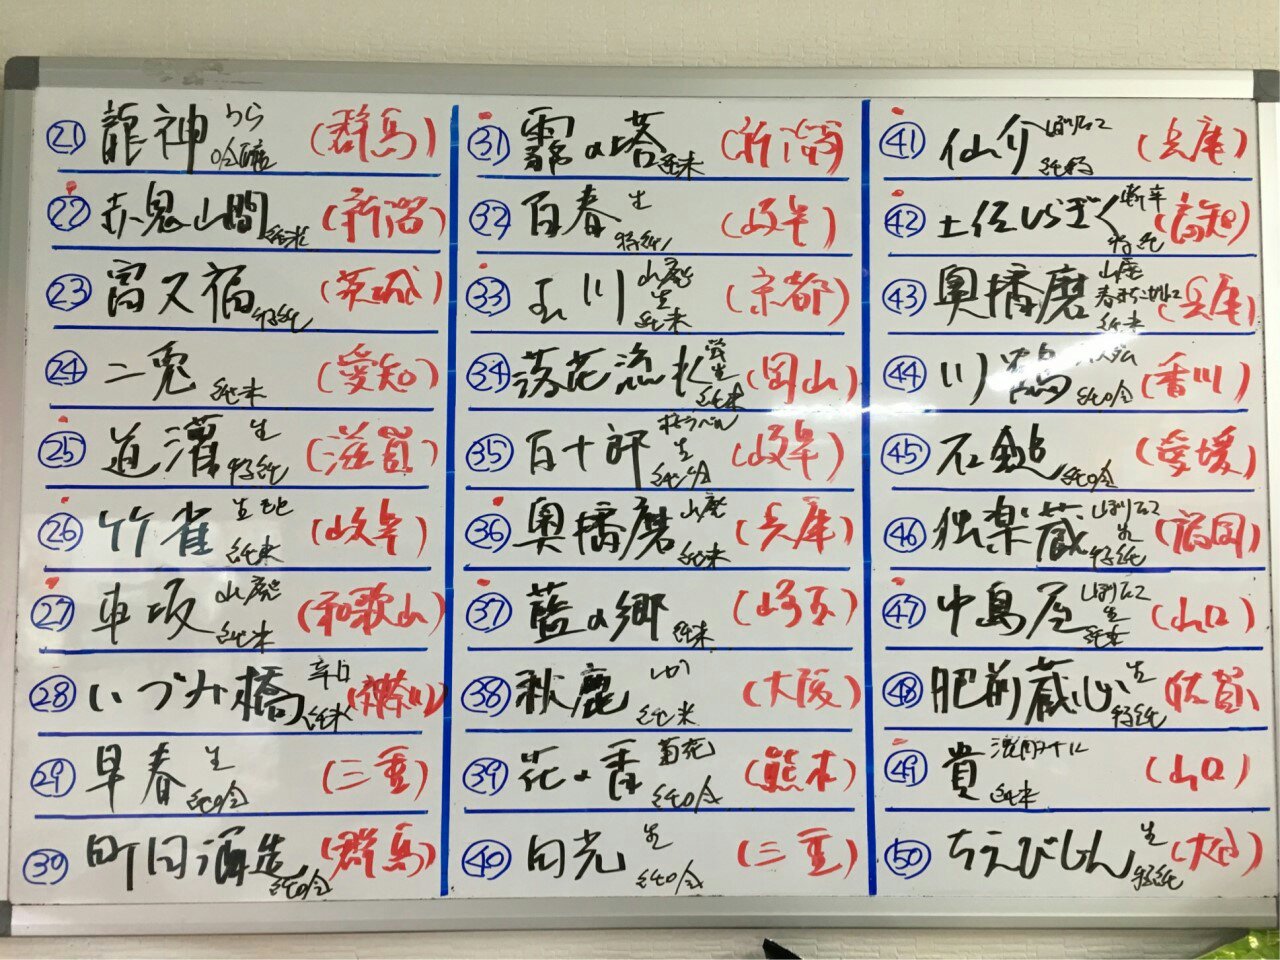 ㉑ 龍神 うら 吟醸 (群馬)
㉒ 赤鬼山間 純米 (新潟)
㉓ 富久福 特純 (茨城)
㉔ 二兎 純米 (愛知)
㉕ 道灌 生 特純 (滋賀)
㉖ 竹雀 生もと 純米 (岐阜)
㉗ 車坂 山廃 純米 (和歌山)
㉘ いづみ橋 辛口 純米 (神奈川)
㉙ 早春 生 純吟 (三重)
㉚ 町田酒造 純吟 (群馬)
㉛ 霧の塔 純米 (新潟)
㉜ 百春 生 特純 (岐阜)
㉝ 玉川 山廃 生 純米 (京都)
㉞ 落花流水 生 純米 (岡山)
㉟ 百十郎 生 純吟 (岐阜)
㊱ 奥播磨 山廃 純米 (兵庫)
㊲ 藍の郷 純米 (埼玉)
㊳ 秋鹿 純米 (大阪)
㊴ 花の香 菊花 純吟 (熊本)
㊵ 田光 生 純吟 (三重)
㊶ 仙介 しぼりたて 純 (兵庫)
㊷ 土佐しらぎく 斬辛 特純 (高知)
㊸ 奥播磨 山廃 純米 (兵庫)
㊹ 川鶴 純吟 (香川)
㊺ 石鎚 純吟 (愛媛)
㊻ 独楽蔵 しぼりたて 生 特純 (福岡)
㊼ 中島屋 しぼりたて 生 純米 (山口)
㊽ 肥前蔵心 生 特純 (佐賀)
㊾ 貴 純米 (山口)
㊿ ちえびじん 生 特純 (大分)